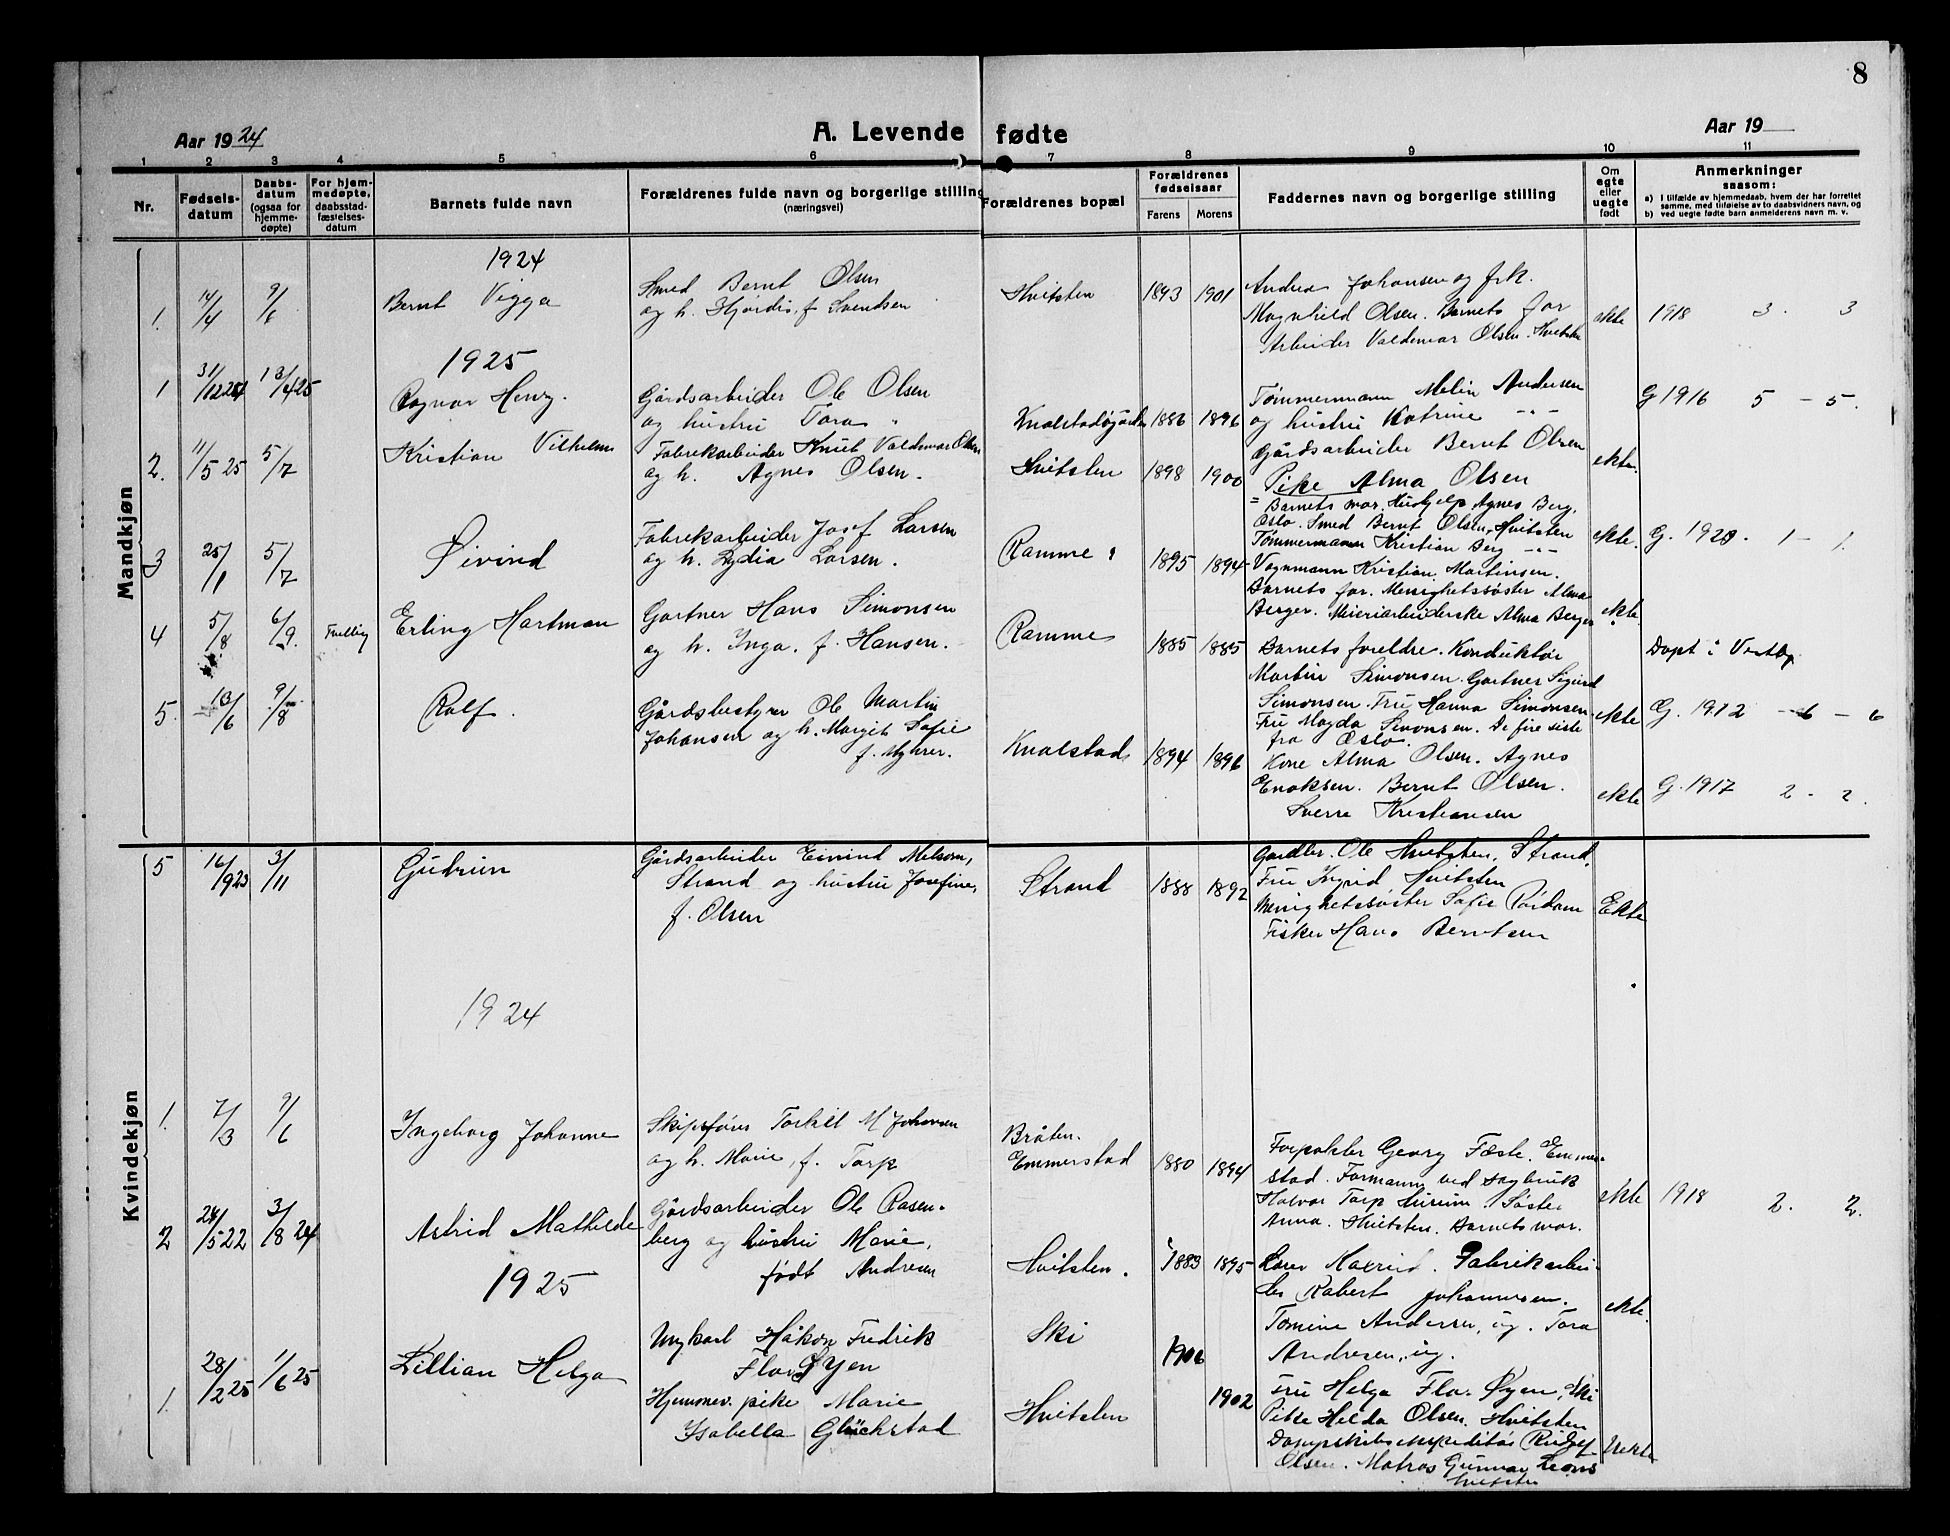 8
Aar 1924
A. Levende fødte
Aar 19
1 2 3 4 5 6 7 8 9 10 11
Nr.
Fødsels-
datum
Daabs-
datum
(ogsaa for
hjemme-
døpte)
For hjem-
medøpte,
daabsstad-
fæstelses-
datum
Barnets fulde navn
Forældrenes fulde navn og borgerlige stilling
(næringsvei)
Forældrenes bopæl
Forældrenes
fødselsaar
Farens Morens
Faddernes navn og borgerlige stilling
Om
egte
eller
uegte
født
Anmerkninger
saasom:
a) I tilfælde av hjemmedaab, hvem der har forrettet
samme, med tilføielse av to daabsvidners navn, og
b) ved uegte fødte barn anmelderens navn m. v.
Mandkjøn
1924
1. 14/4 9/6
Bernt Vigga
Smed Bernt Olsen
og h. Hjørdis, f. Svendsen
Hvitsten
1893 1901
Andrea Johansen og frk.
Magnhild Olsen. Barnets far
Arbeider Valdemar Olsen. Hvitsten
ekte
1918 3. 3
1925
1 31/12 24 13/4 25
Ragnar Henry.
Gårdsarbeider Ole Olsen
og hustru Tora "
Knalstadøgården
1886 1896
Tømmermann Melin Andersen
og hustru Katrine -"-
ekte.
G 1916 5 - 5.
2. 11/5 25 5/7
Kristian Vilhelm
Fabrekarbeider Knut Valdemar Olsen
og h. Agnes Olsen.
Hvitsten
1898 1900
Gårdsarbeider Bernt Olsen
Pike Alma Olsen
= Barnets mor. Hushjelp Agnes Berg,
Oslo. Smed Bernt Olsen, Hvitsten
Tømmermann Kristian Berg -"-
ekte.
G. 1920. 1 - 1.
3 25/1 5/7
Øivind
Fabrekarbeider Josef Larsen
og h. Lydia Larsen.
Ramme
1895 1894
Vognmann Kristian Martinsen.
Barnets far. Menighetssøster Alma
Berger. Meieriarbeiderske Alma Berger
ekte.
4 5/8 6/9
Erling Hartman
Gartner Hans Simonsen
og h. Inga, f. Hansen.
Ramme
1885 1885
Barnets foreldre. Konduktør
Martin Simonsen. Gartner Sigurd
Simonsen. Fru Hanna Simonsen.
Fru Magda Simonsen. De fire siste
fra Oslo.
ekte
Døpt i Vestby
G. 1912 - 6 - 6
5. 13/6 9/8
Rolf.
Gårdsbestyrer Ole Martin
Johansen og h. Margit Sofie
f. Myhrer.
Knalstad
1894 1896
Kone Alma Olsen. Agnes
Enoksen. Bernt Olsen.
Sverre Kristiansen
ekte
G. 1917 2 - 2.
Kvindekjøn
5 16/9 23 3/11
Gudrun
Gårdsarbeider Eivind Melsom,
Strand og hustru Josefine,
f. Olsen
Strand
1888 1892
Gardbr. Ole Hvitsten, Strand.
Fru Ingrid Hvitsten
Menighetssøster Sofie Rørdam
Fisker Hans Berntsen
Ekte
1924
1. 7/3 9/6
Ingeborg Johanne
Skipsfører Torkel M Johansen
og h. Marie, f. Torp
Bråten.
Emmerstad
1880 1894
Forpakter Georg Fæste. Emmer-
stad. Formann ved sagbruk
Halvor Torp Hurum. Søster
Anna. Hvitsten. Barnets mor.
ekte
1918 2. 2.
2 24/5 22 3/8 24
Astrid Mathilde
Gårdsarbeider Ole Rosen-
berg og hustru Marie,
født Andresen
Hvitsten.
1883 1895
Fabrikarbei-
der Robert Johannesen.
Tomine Andersen, ug. Tora
Andresen, ug.
ekte.
1925
1. 28/2 25 1/6 25
Lillian Helga
Ungkarl Håkon Fredrik
Flor Øyen
Hjemmev. pike Marie
Isabella Glückstad
Ski
Hvitsten
1906
1902
Fru Helga Flor Øyen, Ski
Pike Helda Olsen. Hvitsten
Dampskibsekspeditør Rudolf
Olsen. Matros Gunnar
Hvitsten
Uekte